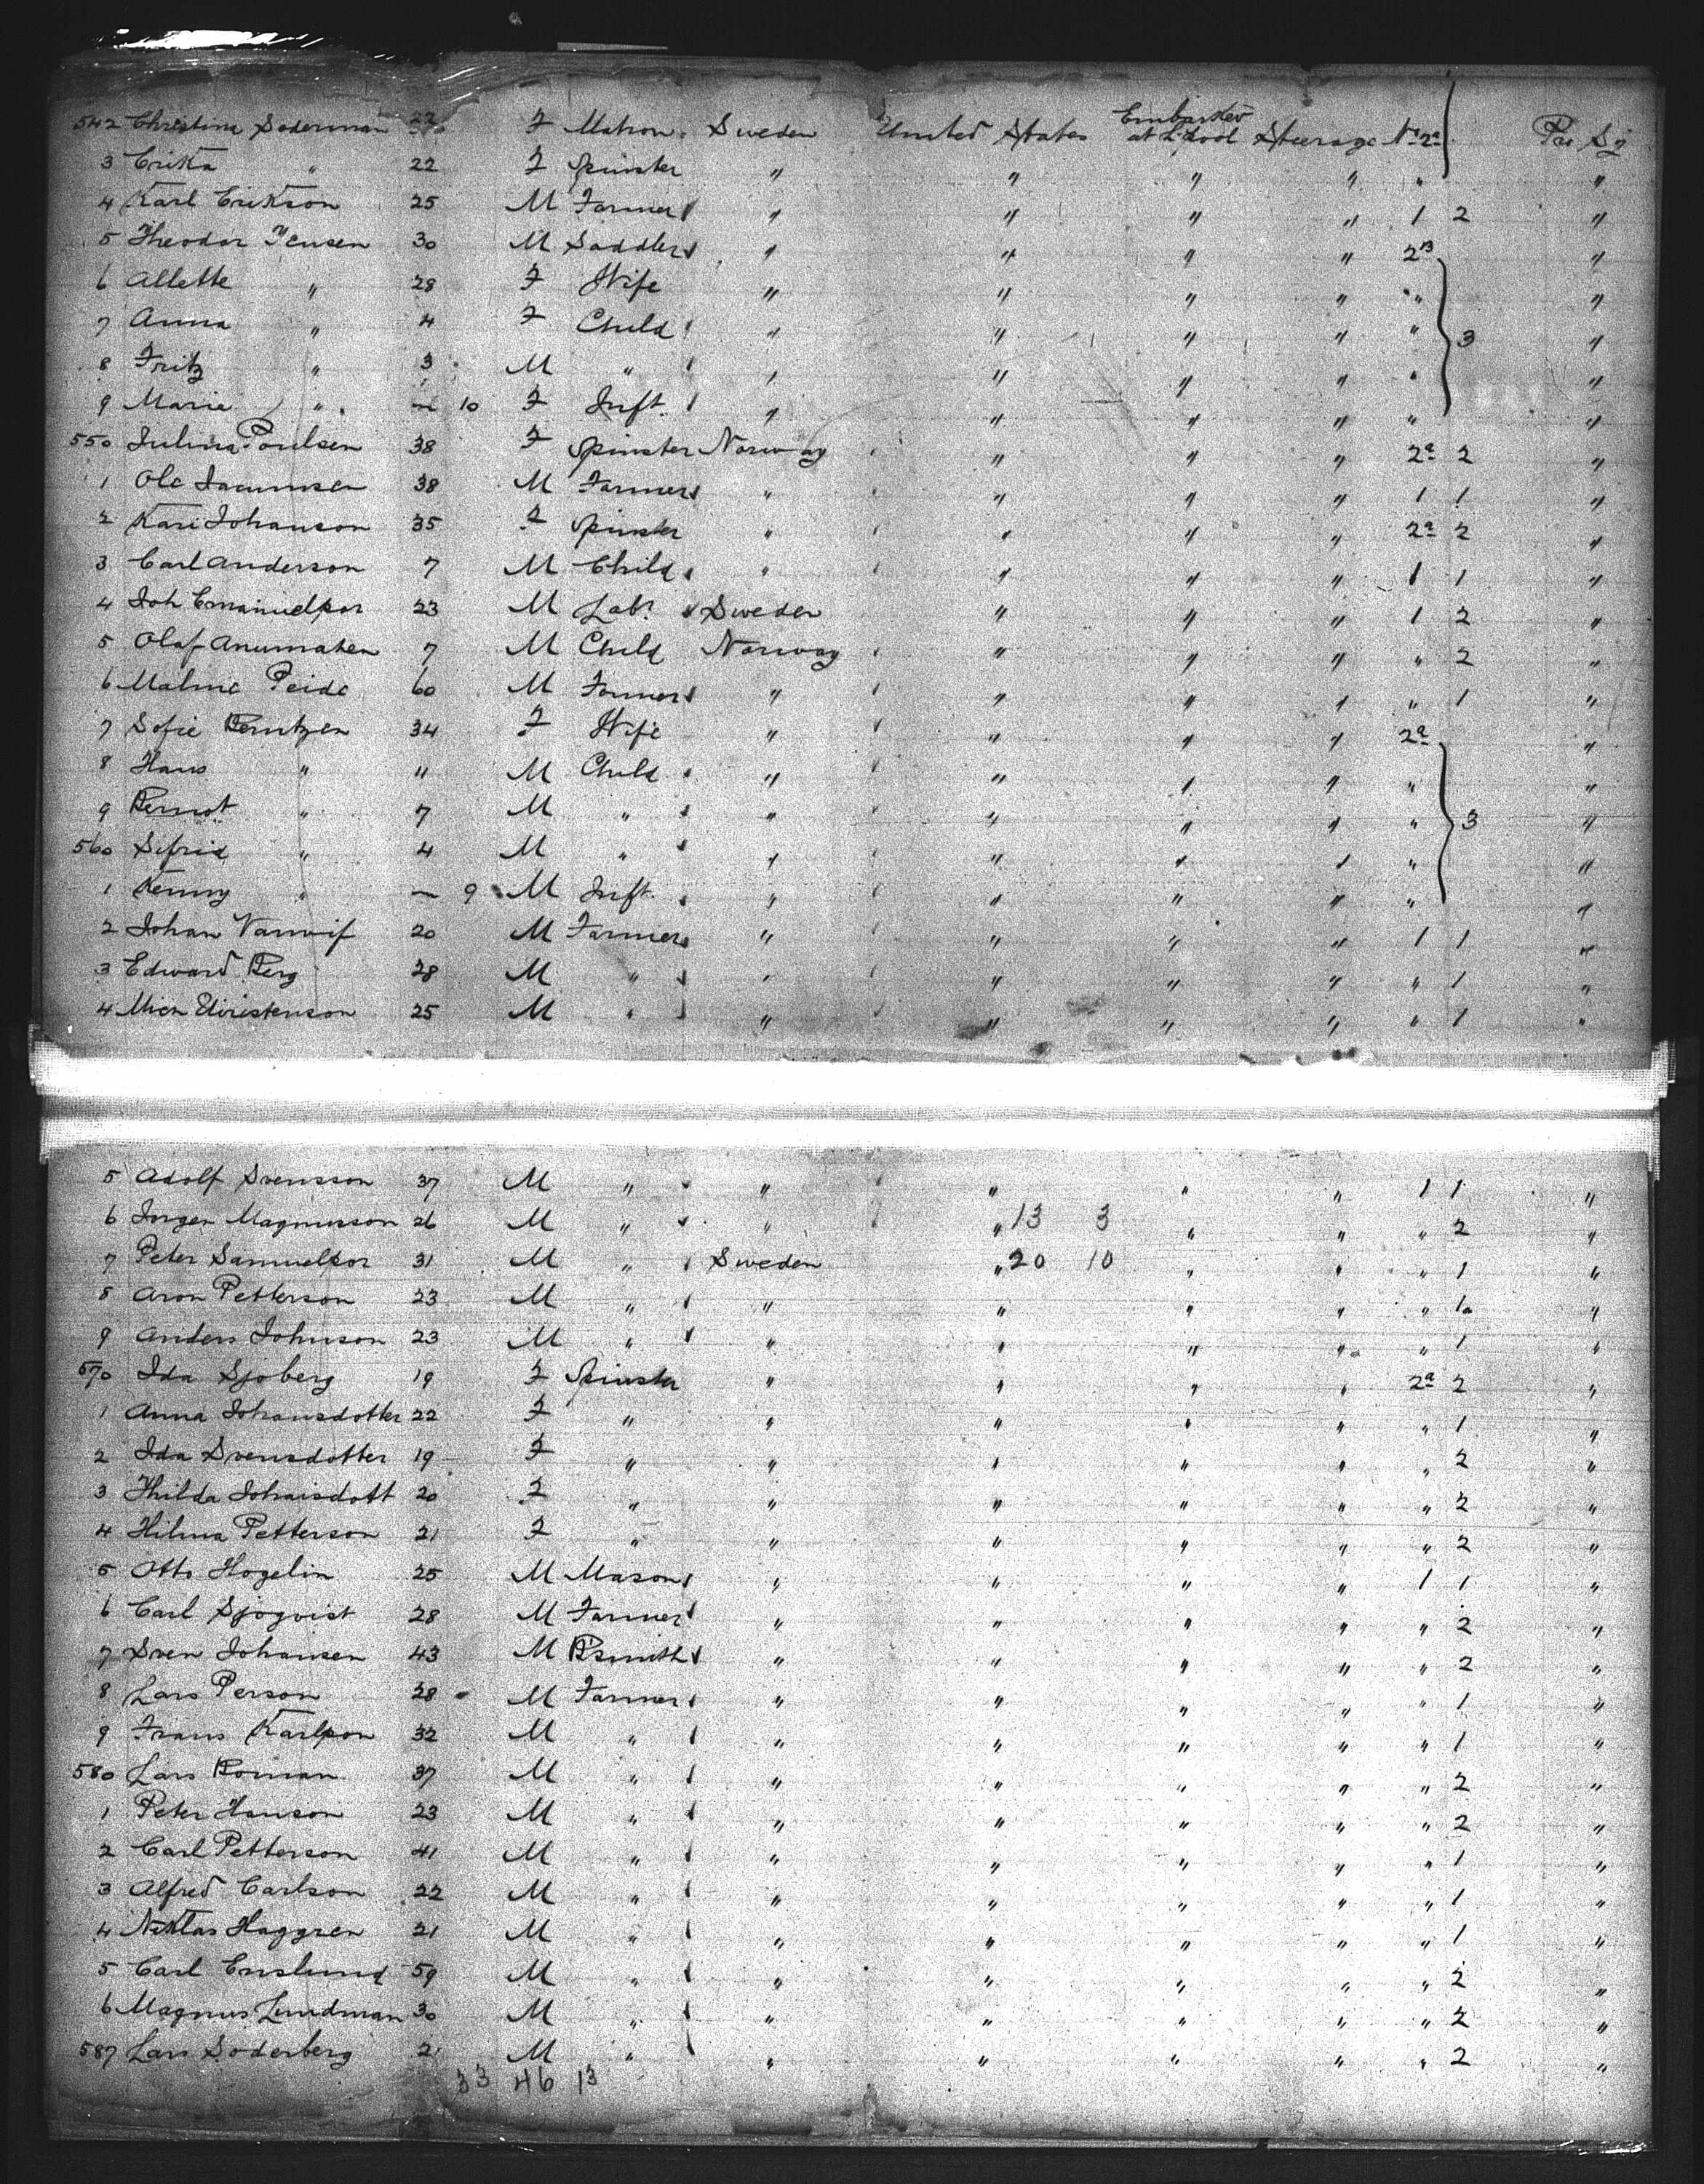 542 Christina Soderman 22 F Matron Sweden United States Embarked at L'pool Steerage No 2a Pro Sj
3 Erika " 22 F Spinster " " " " " "
4 Karl Erikson 25 M Farmer " " " " 1 2 "
5 Theodor Jensen 30 M Saddler " " " " 2B "
6 Allette " 28 F Wife " " " " " "
7 Anna " 4 F Child " " " " " 3 "
8 Fritz " 3 M " " " " " " "
9 Marie " — 10 F Inft. " " " " " "
550 Julina Poulsen 38 F Spinster Norway " " " 2a 2 "
1 Ole 38 M Farmer " " " " 1 1 "
2 Kari Johanson 35 F Spinster " " " " 2a 2 "
3 Carl Anderson 7 M Child " " " " 1 1 "
4 Joh Emanuelson 23 M Labr Sweden " " " 1 2 "
5 Olaf 7 M Child Norway " " " " 2 "
6 Malme Peide 60 M Farmer " " " " " 1 "
7 Sofie Berntzen 34 F Wife " " " " 2a "
8 Hans " 11 M Child " " " " " "
9 Bernot " 7 M " " " " " " 3 "
560 Sifrid " 4 M " " " " " " "
1 Kenny " — 9 M Inft. " " " " " "
2 Johan 20 M Farmer " " " " 1 1 "
3 Edward Berg 28 M " " " " " " 1 "
4 25 M " " " " " " 1 "
5 Adolf Svensson 37 M " " " " " 1 1 "
6 Inger Magnusson 26 M " " " 13 3 " " " 2 "
7 Peter Samuelson 31 M " Sweden " 20 10 " " " 1 "
8 Aron Petterson 23 M " " " " " " 1 "
9 Anders Johnson 23 M " " " " " " 1 "
570 Ida Sjoberg 19 F Spinster " " " " 2a 2 "
1 Anna Johansdotter 22 F " " " " " " 1 "
2 Ida Svensdotter 19 F " " " " " " 2 "
3 Hhilda Johansdott 20 F " " " " " " 2 "
4 Hilma Petterson 21 F " " " " " " 2 "
5 Otto Hogelin 25 M Mason " " " " 1 1 "
6 Carl Sjoqvist 28 M Farmer " " " " " 2 "
7 Sven Johansen 43 M B'smith " " " " " 2 "
8 Lars Person 28 M Farmer " " " " " 1 "
9 Frans Karlson 32 M " " " " " " 1 "
580 Lars Boman 37 M " " " " " " 2 "
1 Peter Hanson 23 M " " " " " " 2 "
2 Carl Petterson 41 M " " " " " " 1 "
3 Alfred Carlson 22 M " " " " " " 1 "
4 Niklas Haggren 21 M " " " " " " 1 "
5 Carl Enslund 59 M " " " " " " 2 "
6 Magnus Lundman 30 M " " " " " " 2 "
587 Lars Soderberg 21 M " " " " " " 2 "
33 46 13